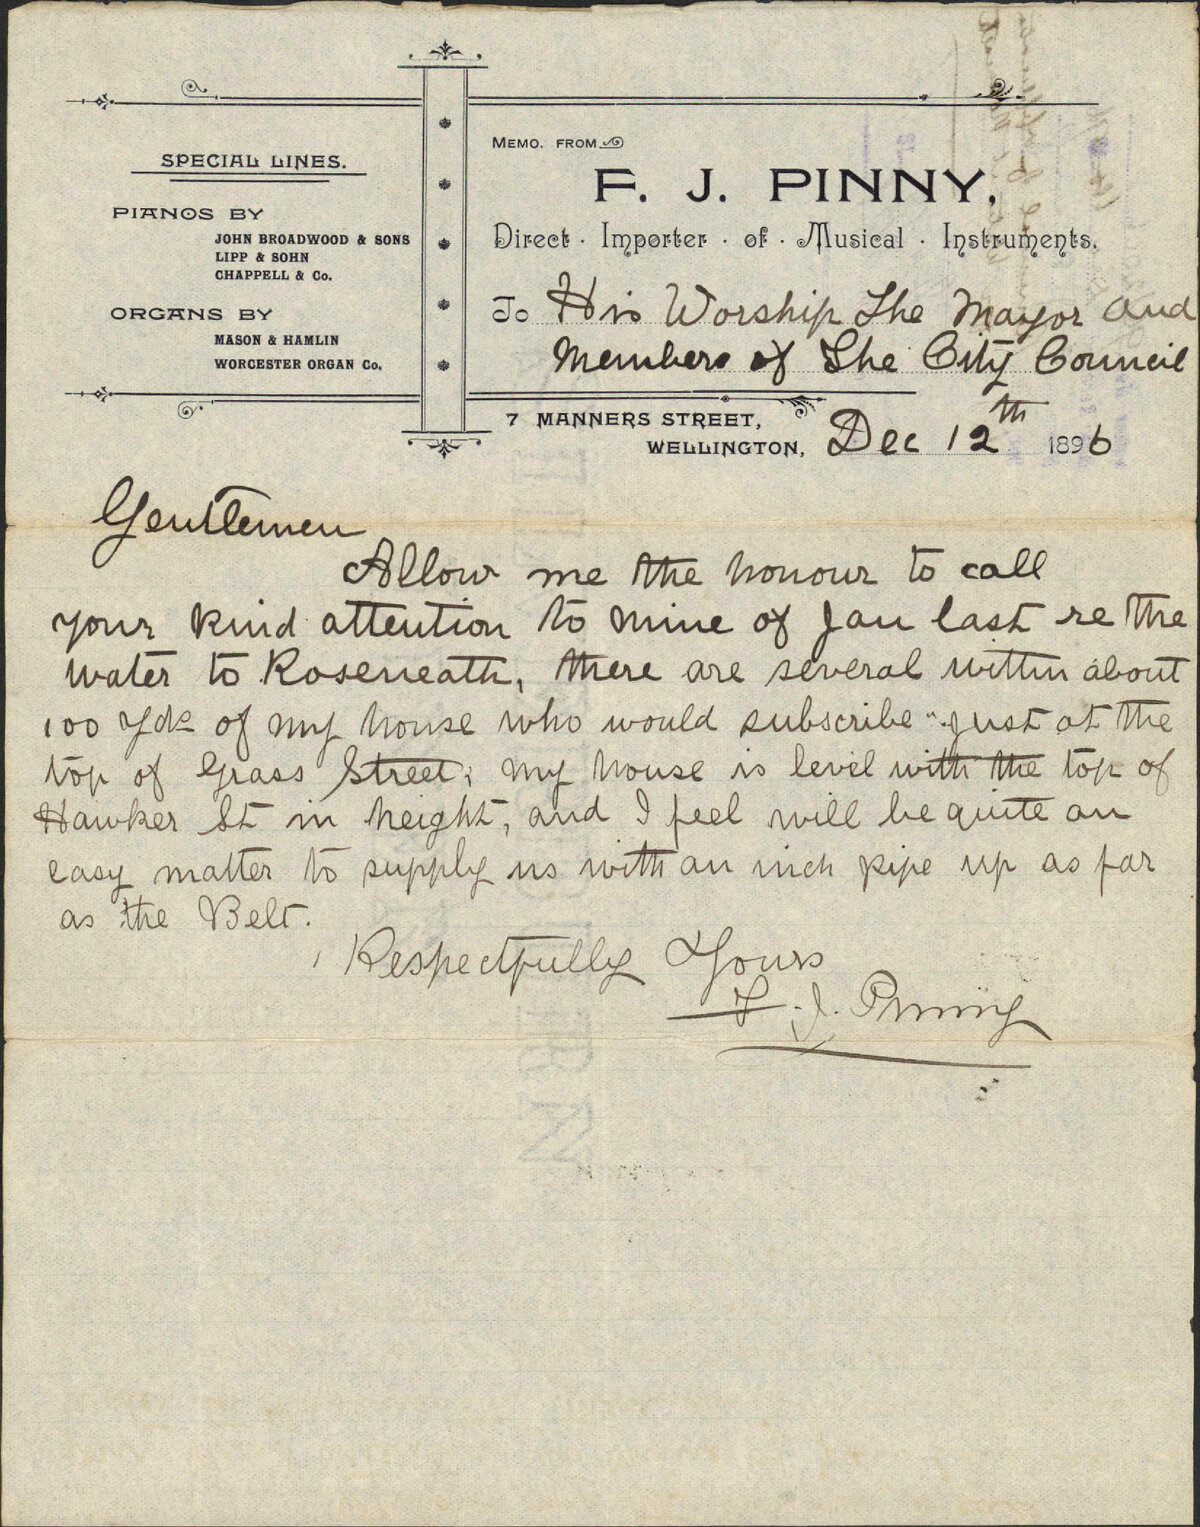 SPECIAL LINES.
PIANOS BY
JOHN BROADWOOD & SONS
LIPP & SOHN
CHAPPELL & Co.
ORGANS BY
MASON & HAMLIN
WORCESTER ORGAN Co.
MEMO. FROM
F. J. PINNY,
Direct · Importer · of · Musical · Instruments.
To His Worship The Mayor and
Members of The City Council
7 MANNERS STREET,
WELLINGTON, Dec 12th 1896
Gentlemen
Allow me the honour to call
your kind attention to mine of Jan last re the
water to Roseneath, there are several within about
100 Yds of my house who would subscribe just at the
top of Grass Street, my house is level with the top of
Hawker St in height, and I feel will be quite an
easy matter to supply us with an inch pipe up as far
as the Belt.
Respectfully Yours
F. J. Pinny